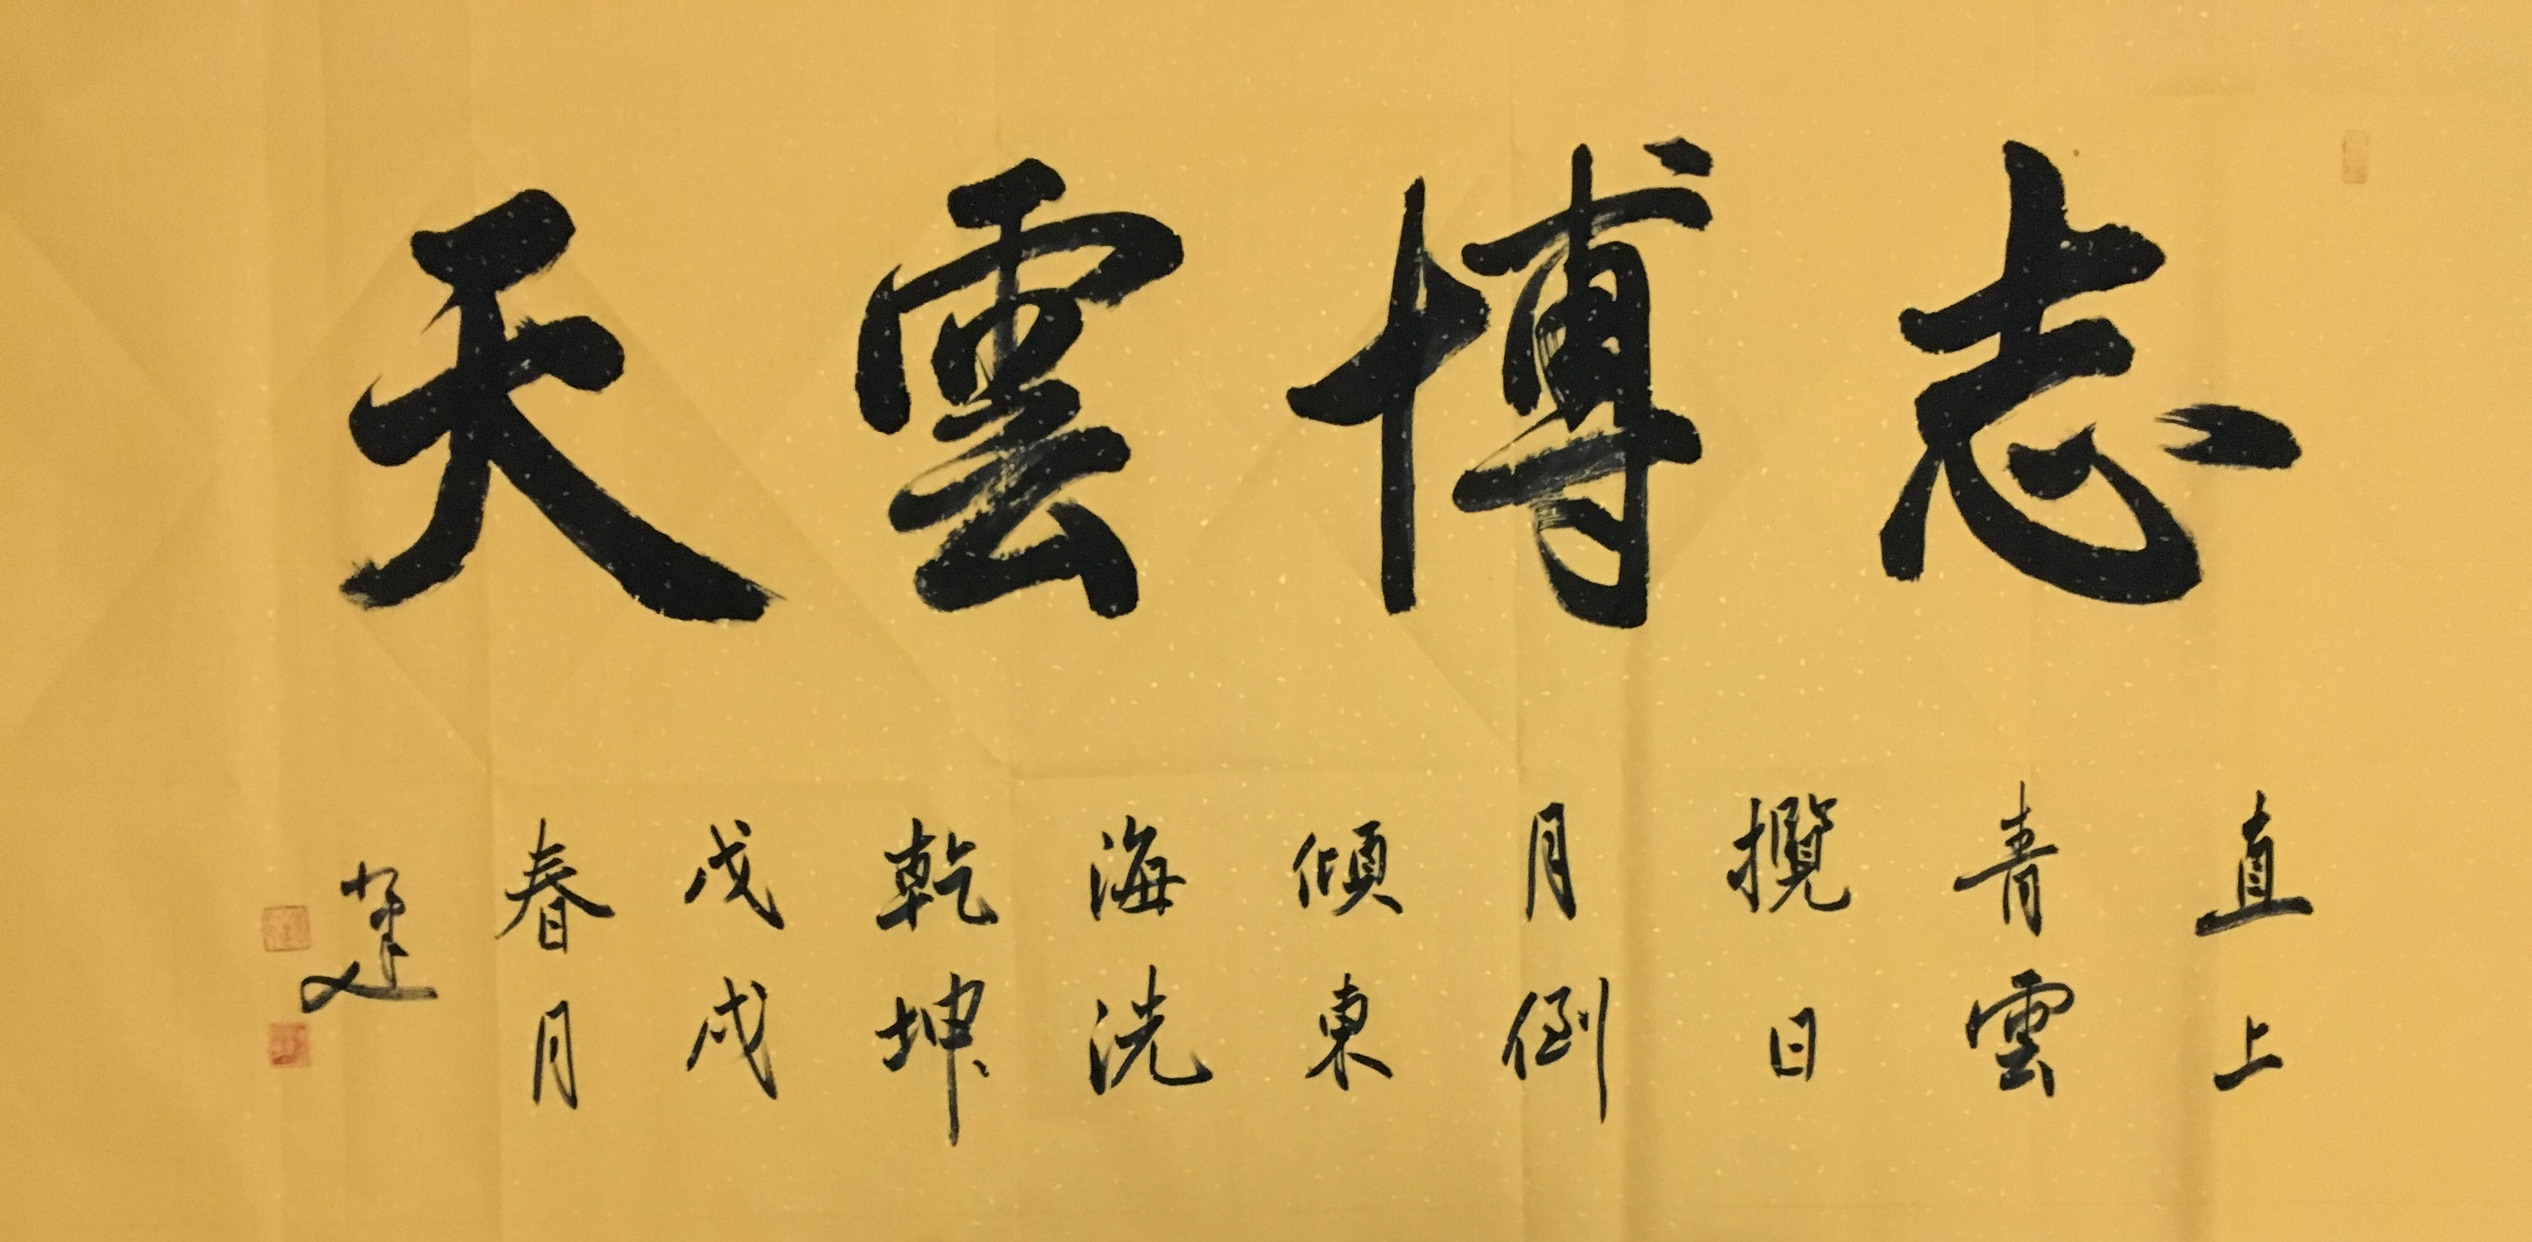 志博雲天
直上
青雲
攬日
月倒
傾東
海洗
乾坤
戊戌
春月